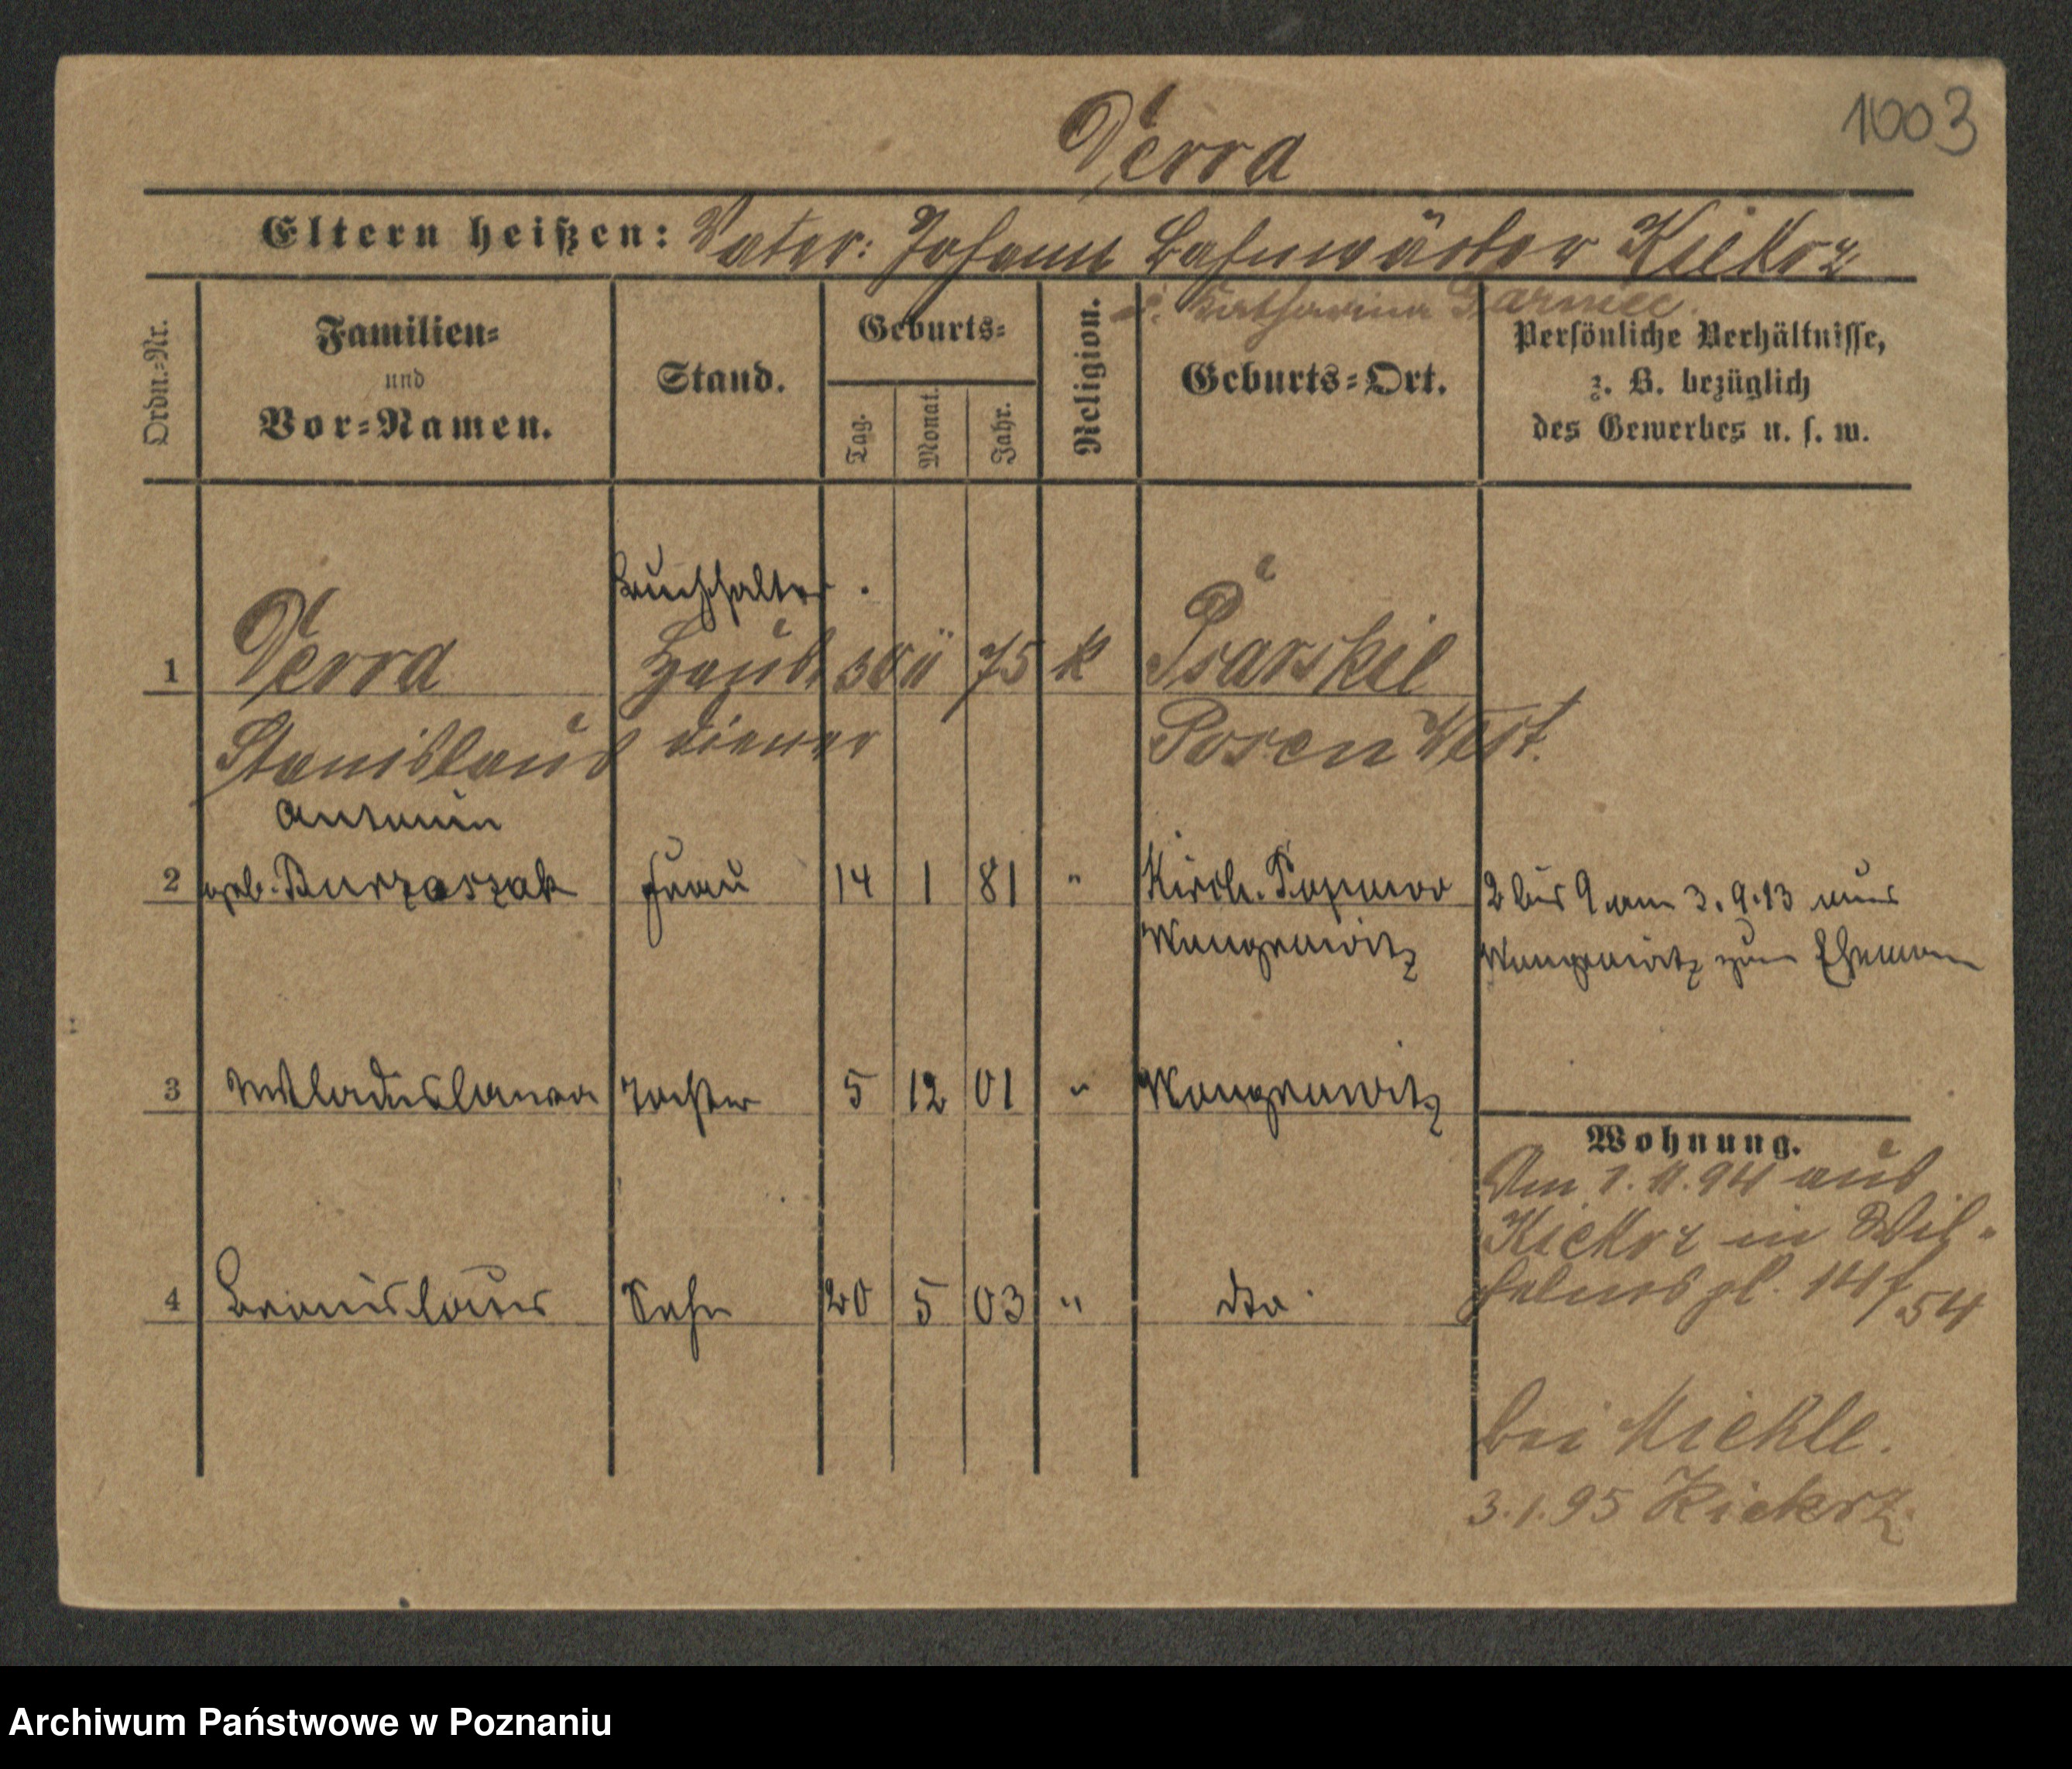 1003
Derra
Eltern heißen: Vater: Johann Bahnwärter Kiekrz
Katharina
Ordn.-Nr.
Familien-
und
Vor-Namen.
Stand.
Geburts-
Tag.
Monat.
Jahr.
Religion.
Geburts-Ort.
Persönliche Verhältnisse,
z. B. bezüglich
des Gewerbes u. s. w.
Buchhalter.
1 Derra Haus 30 11 75 k Psarskie
Stanislaus diener Posen West.
Antonin
2 geb. Burzaszak Frau 14 1 81 " 2 bis 9 am 3.9.13 aus
Wongrowitz Wongrowitz zum Ehemann
3 Wladislawa Tochter 5 12 01 " Wongrowitz
Wohnung.
Am 1.11.94 aus
Kiekrz in Wil-
helmspl. 14/54
4 Bronislaus Sohn 20 5 03 " dto.
bei
3.1.95 Kiekrz.
Archiwum Państwowe w Poznaniu